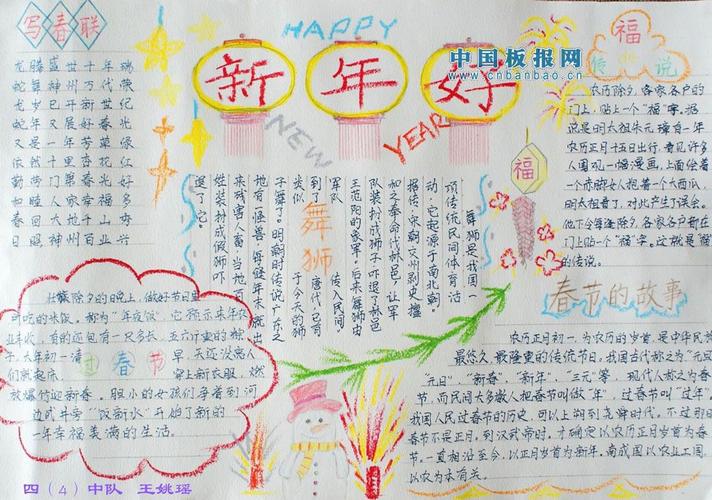 写春联
龙腾盛世千年瑞
蛇舞神州万代荣
龙岁已开新世纪
蛇年又展好春光
又是一年芳草绿
依然十里杏花红
勤劳门第春光好
和睦人家幸福多
春回大地千山秀
日照神州百业兴
HAPPY
新年好
NEW
YEAR
中国板报网
www.cnbanbao.cn
福
传说
农历除夕,客家各户的
门上,贴上一个"福"字。据
说是明太祖朱元璋有一年
农历正月十五日出行,看见许多
人围观一幅漫画,上面绘着
一个赤脚女人抱着一个大西瓜,
明太祖看了,对此产生了误会。
他下令每逢除夕,客家各户新在
门上贴一个"福"字。这就是福
的传说。
福
舞狮是我国一
项传统民间体育活
动,它起源于南北朝。
据传,宋朝交州刺史檀
和之奉命伐林邑,让军
队装扮成狮子吓退了林邑
王范阳的象军,后来舞狮由
军队 传入民间。
到了 唐代,已有
类似 于今天的狮
舞狮
子舞了。明朝时传说广东之
地有怪兽,每逢年末就出
来残害人畜,当地有
姓装扮成假狮吓
退了它。
过春节
壮族除夕的晚上,做好节日里
可吃的米饭,称为"年夜饭",它预示来年农
业丰收,有的还包有一尺多长,五六斤重的粽
子。大年初一清 早,天还没亮人
们就起床, 穿上新衣服,燃
放爆竹迎新春。胆小的女孩们争着到河
边或井旁"饮新水"开始了新的
一年幸福美满的生活。
春节的故事
农历正月初一,为农历的岁首,是中华民族
最悠久、最隆重的传统节日,我国古代称之为"元旦
"元日"、"新春"、"新年"、"三元"等。现代人称之为春
节,而民间大多数人把春节叫做"年",过春节叫"过年"。
我国人民过春节的历史,可以上溯到尧舜时代。不过那时
春节不是正月,到汉武帝时,才确定以农历正月岁首为春节。
一直相沿至今,以正月岁首为新年,而成国以农业立国,
以农为本有关。
四(4)中队 王姚瑶